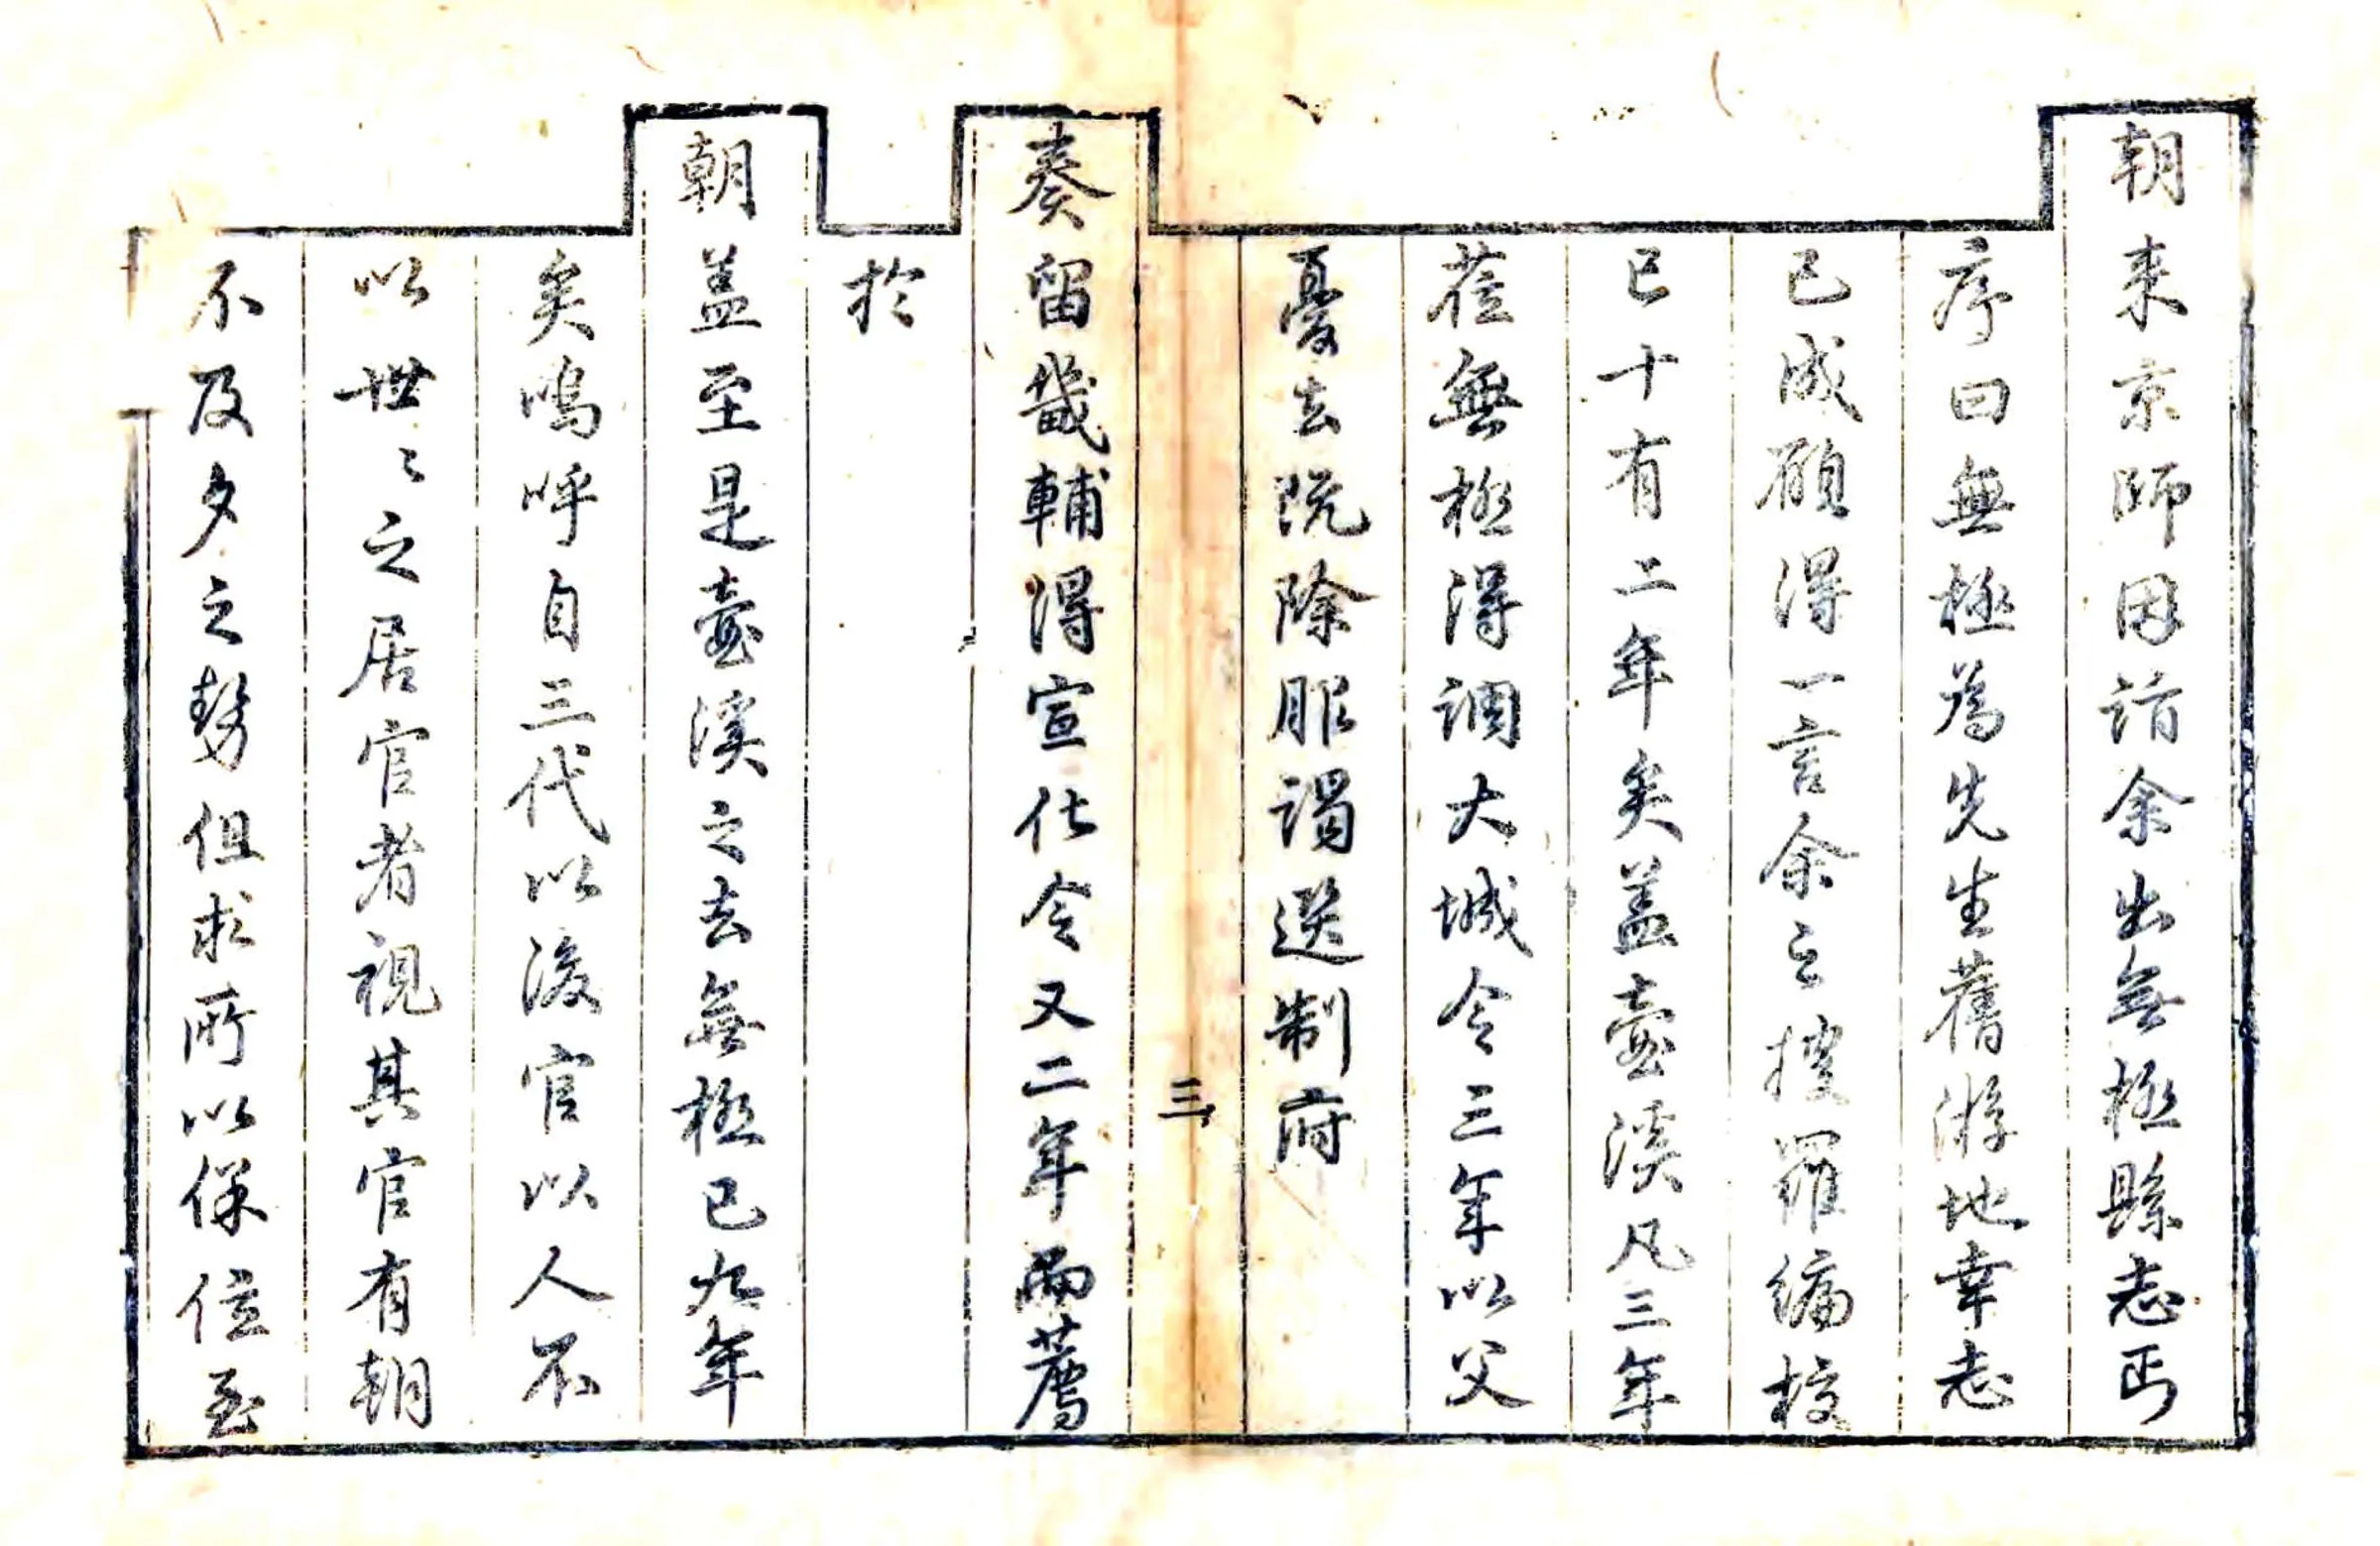 朝来京師因詣余出無極縣志丐
序曰無極為先生舊游地幸志
已成願得一言余之搜羅編校
已十有二年矣盖臺溪凡三年
蒞無極得調大城令三年以父
憂去既除服謁選制府
三
奏留畿輔得宣化令又二年而薦
於
朝盖至是臺溪之去無極已九年
矣嗚呼自三代以後官以人不
以世〻之居官者視其官有朝
不及夕之勢但求所以保位至